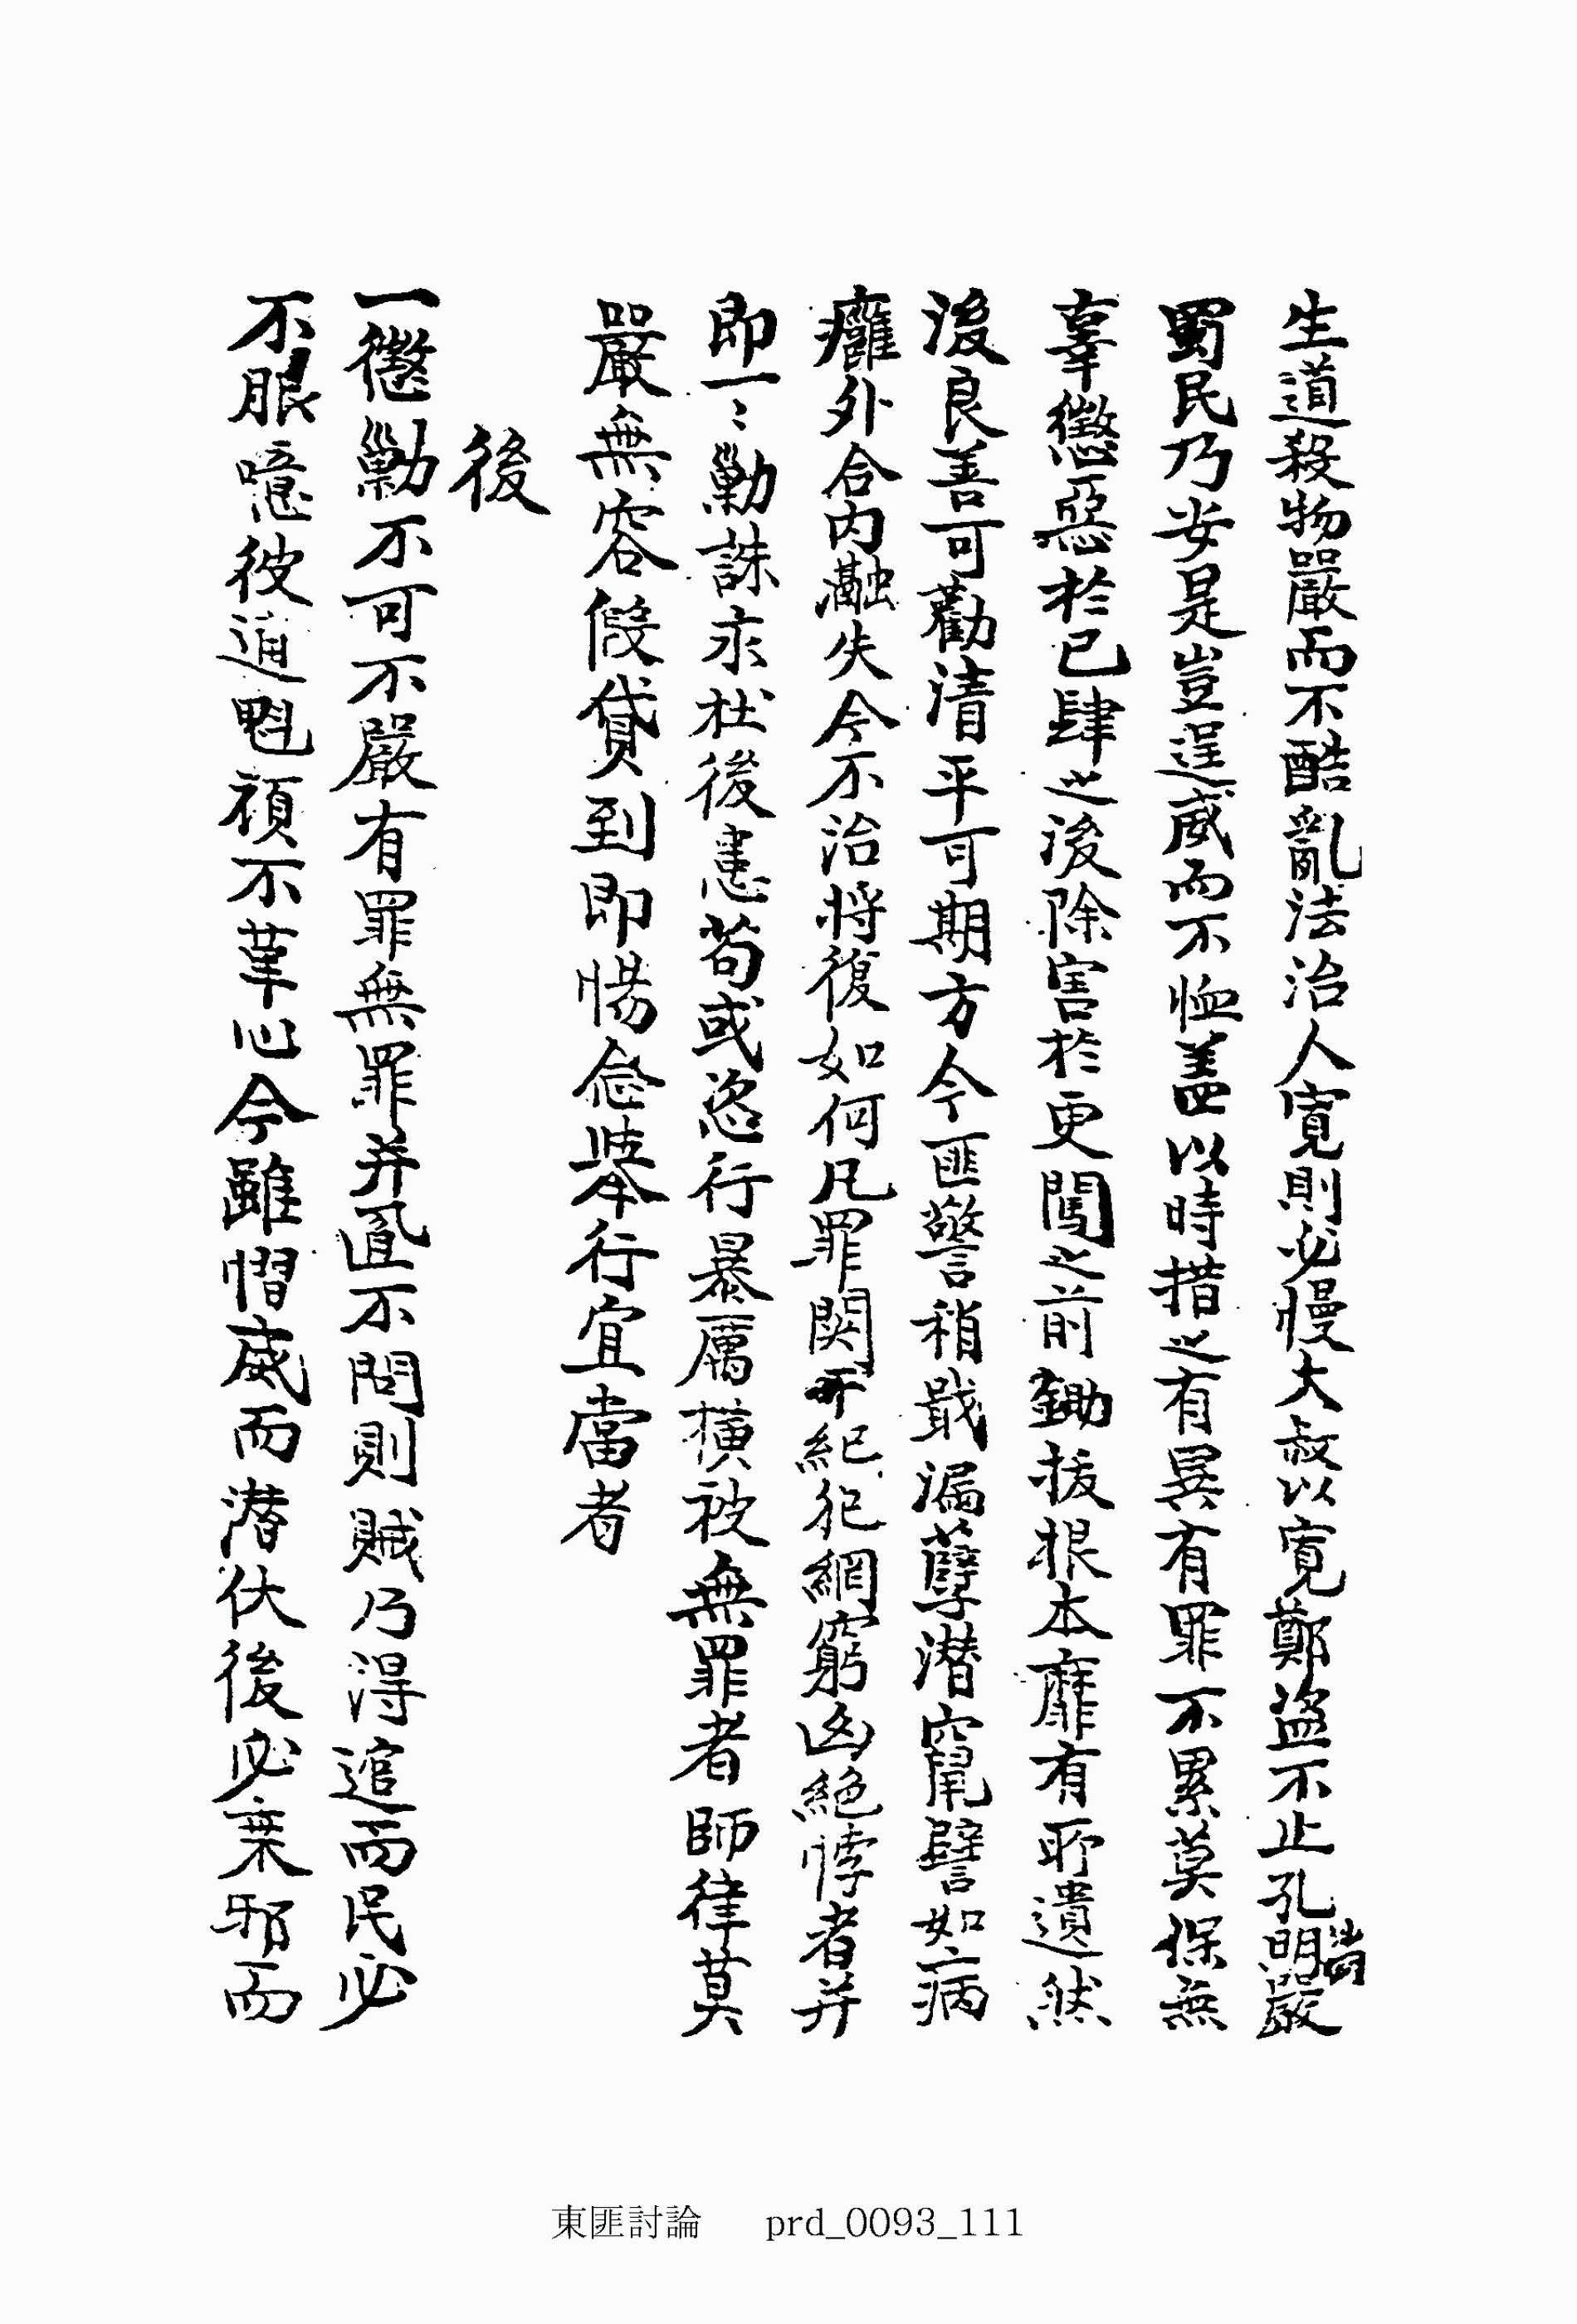 生道殺物嚴而不酷亂法治人寬則必慢大叔以寬鄭盜不止孔明嚴
蜀民乃安是豈逞威而不恤盖以時措之有異有罪不累莫保無
辜懲惡於已肆之後除害於更闖之前鋤拔根本靡有所遺然
後良善可勸清平可期方今匪警稍戢漏孽潜竄譬如病
癰外合内瀜失今不治將復如何凡罪関干紀犯網窮凶絶悖者并
即一〻勦誅永杜後患苟或恣行暴厲橫被無罪者師律莫
嚴無容假貸到即惕念擧行宜當者
後
一懲勦不可不嚴有罪無罪并置不問則賊乃得逭而民必
不服噫彼逋魁頑不革心今雖慴威而潜伏後必棄邪而
東匪討論 prd_0093_111